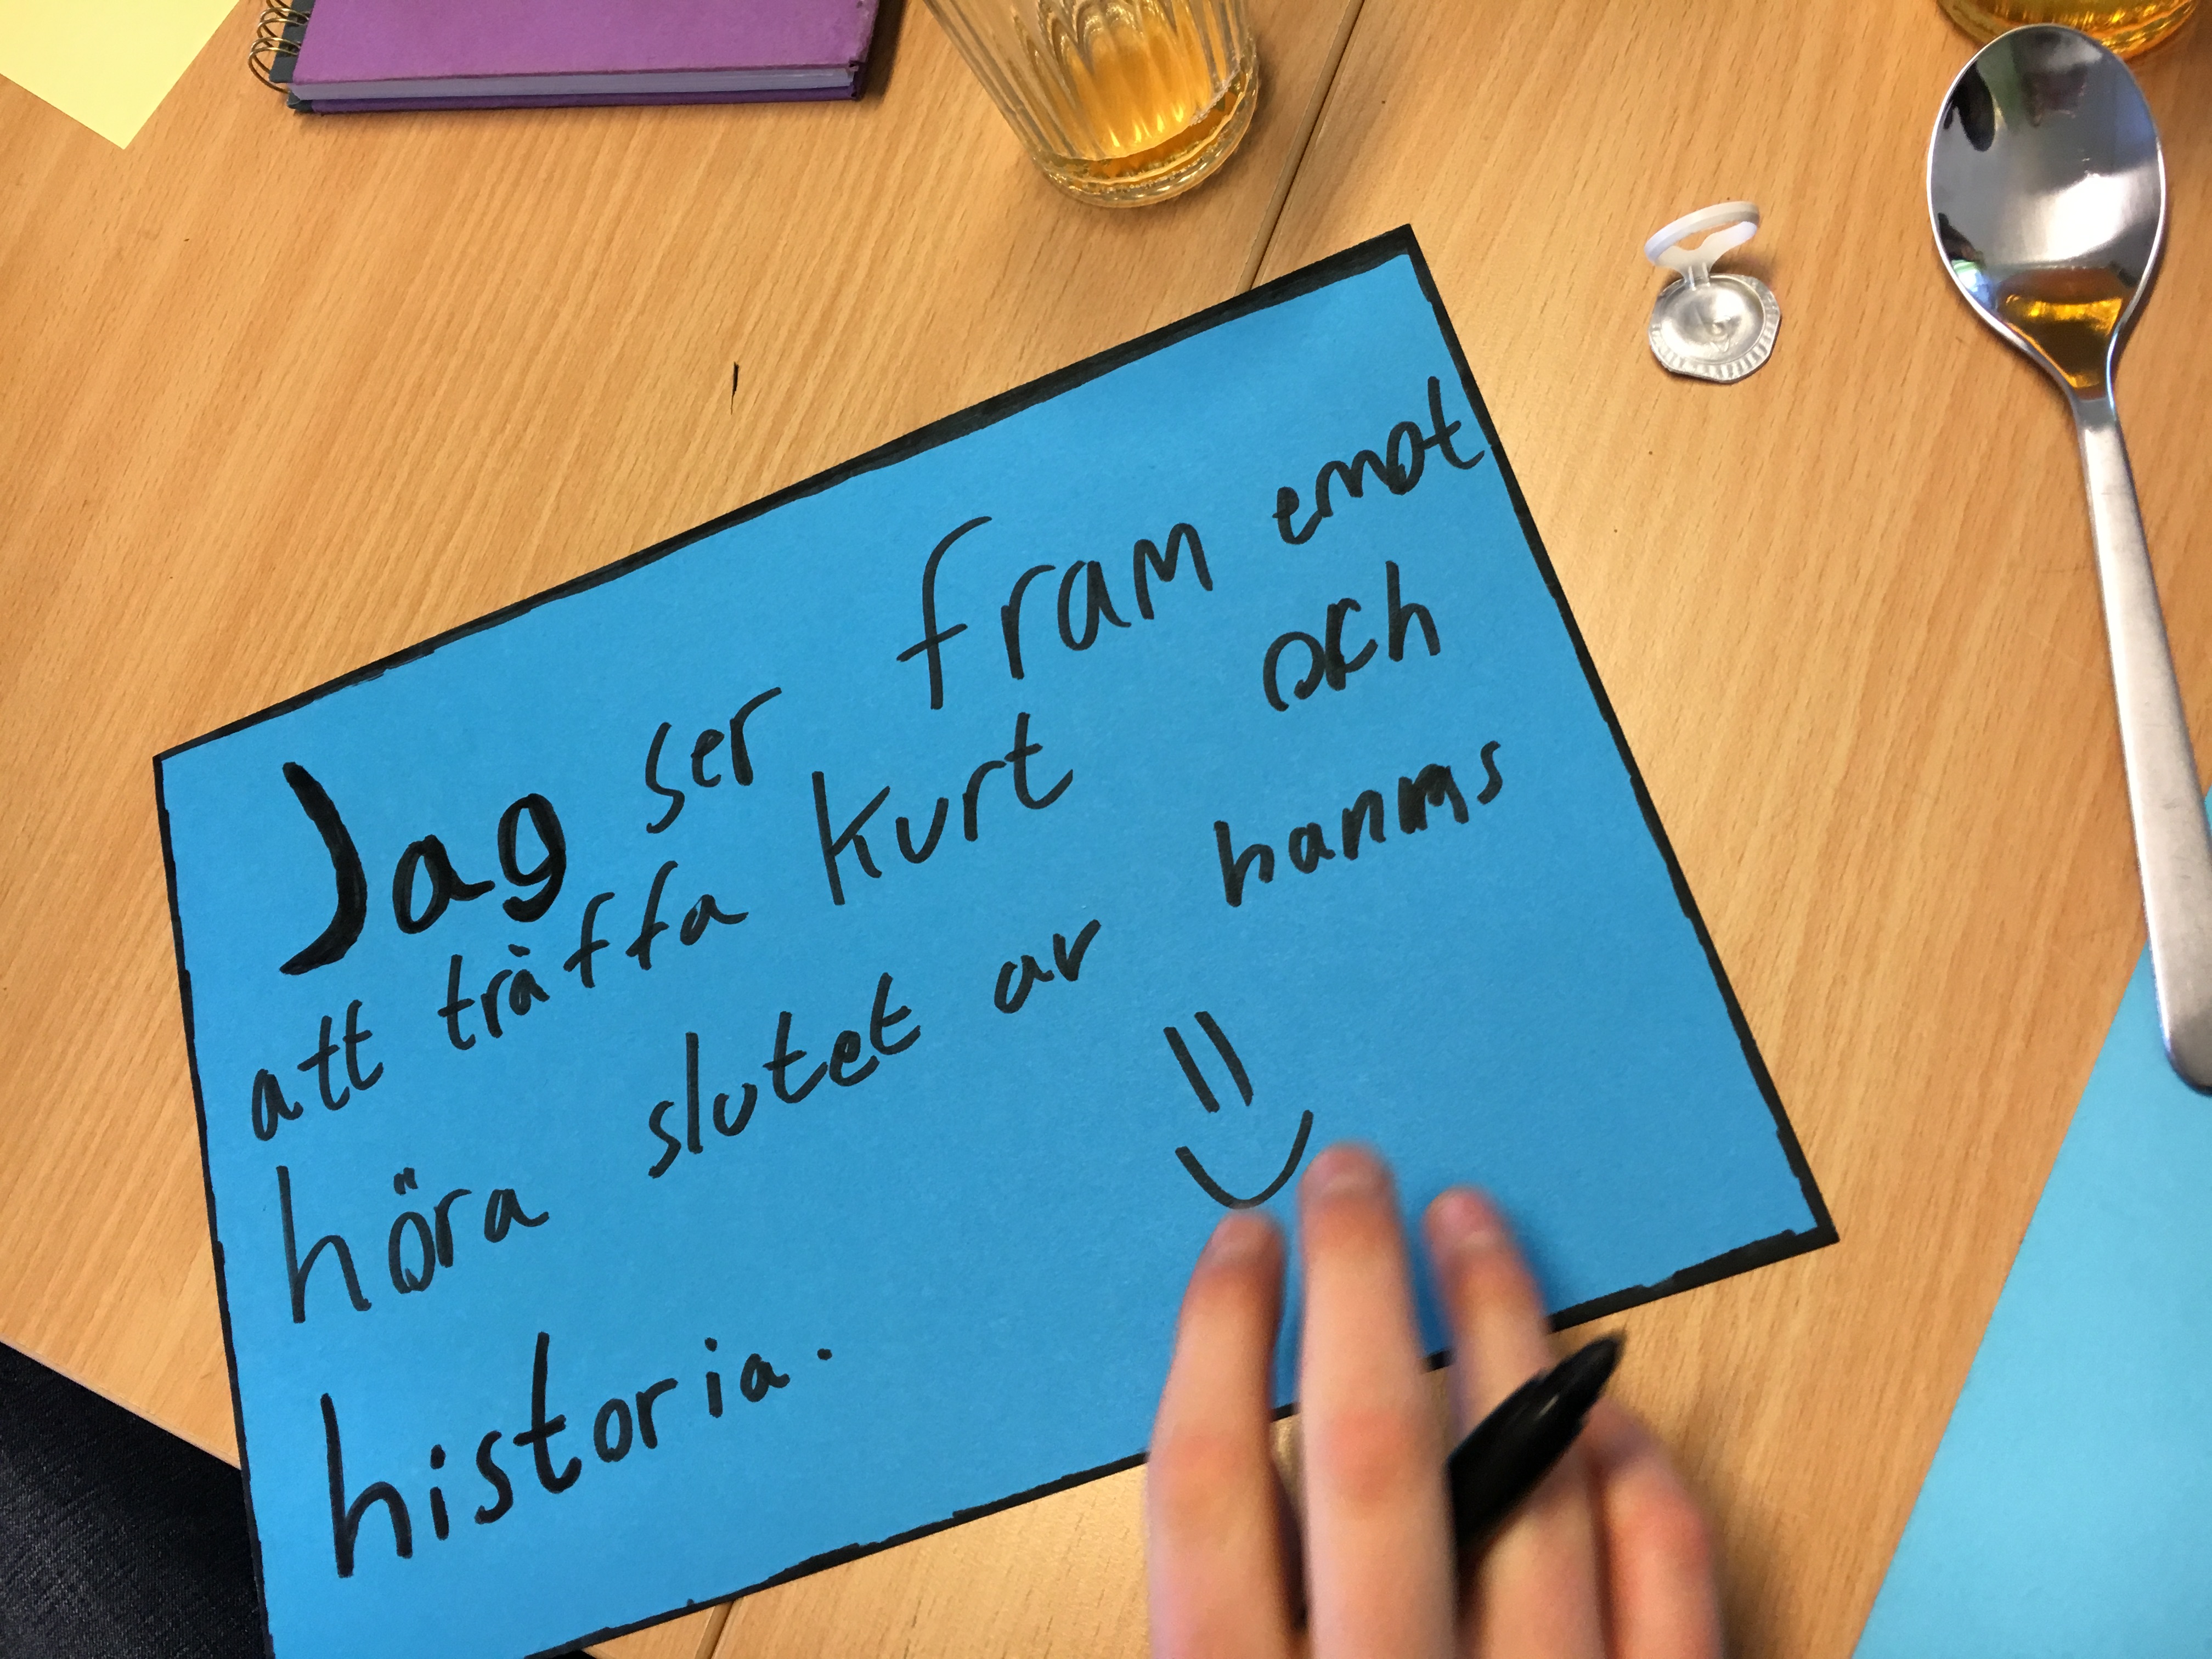 Jag ser fram emot
att träffa kurt och
höra slutet av hanns
historia.